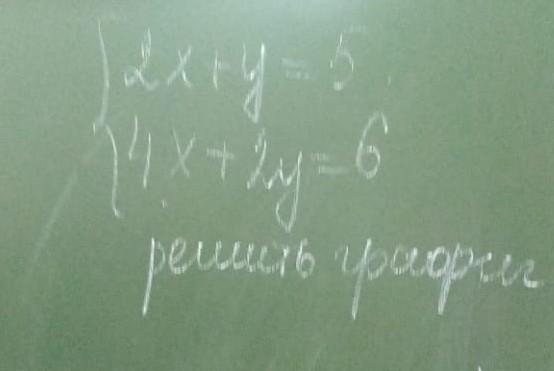 2x+y=5
4x+2y=6
решить график